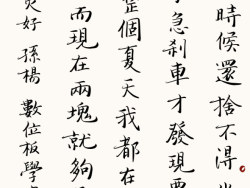 時候還捨不得
急剎車才發現
整個夏天我都在
而現在兩塊就夠
好 孫楊 數位板學